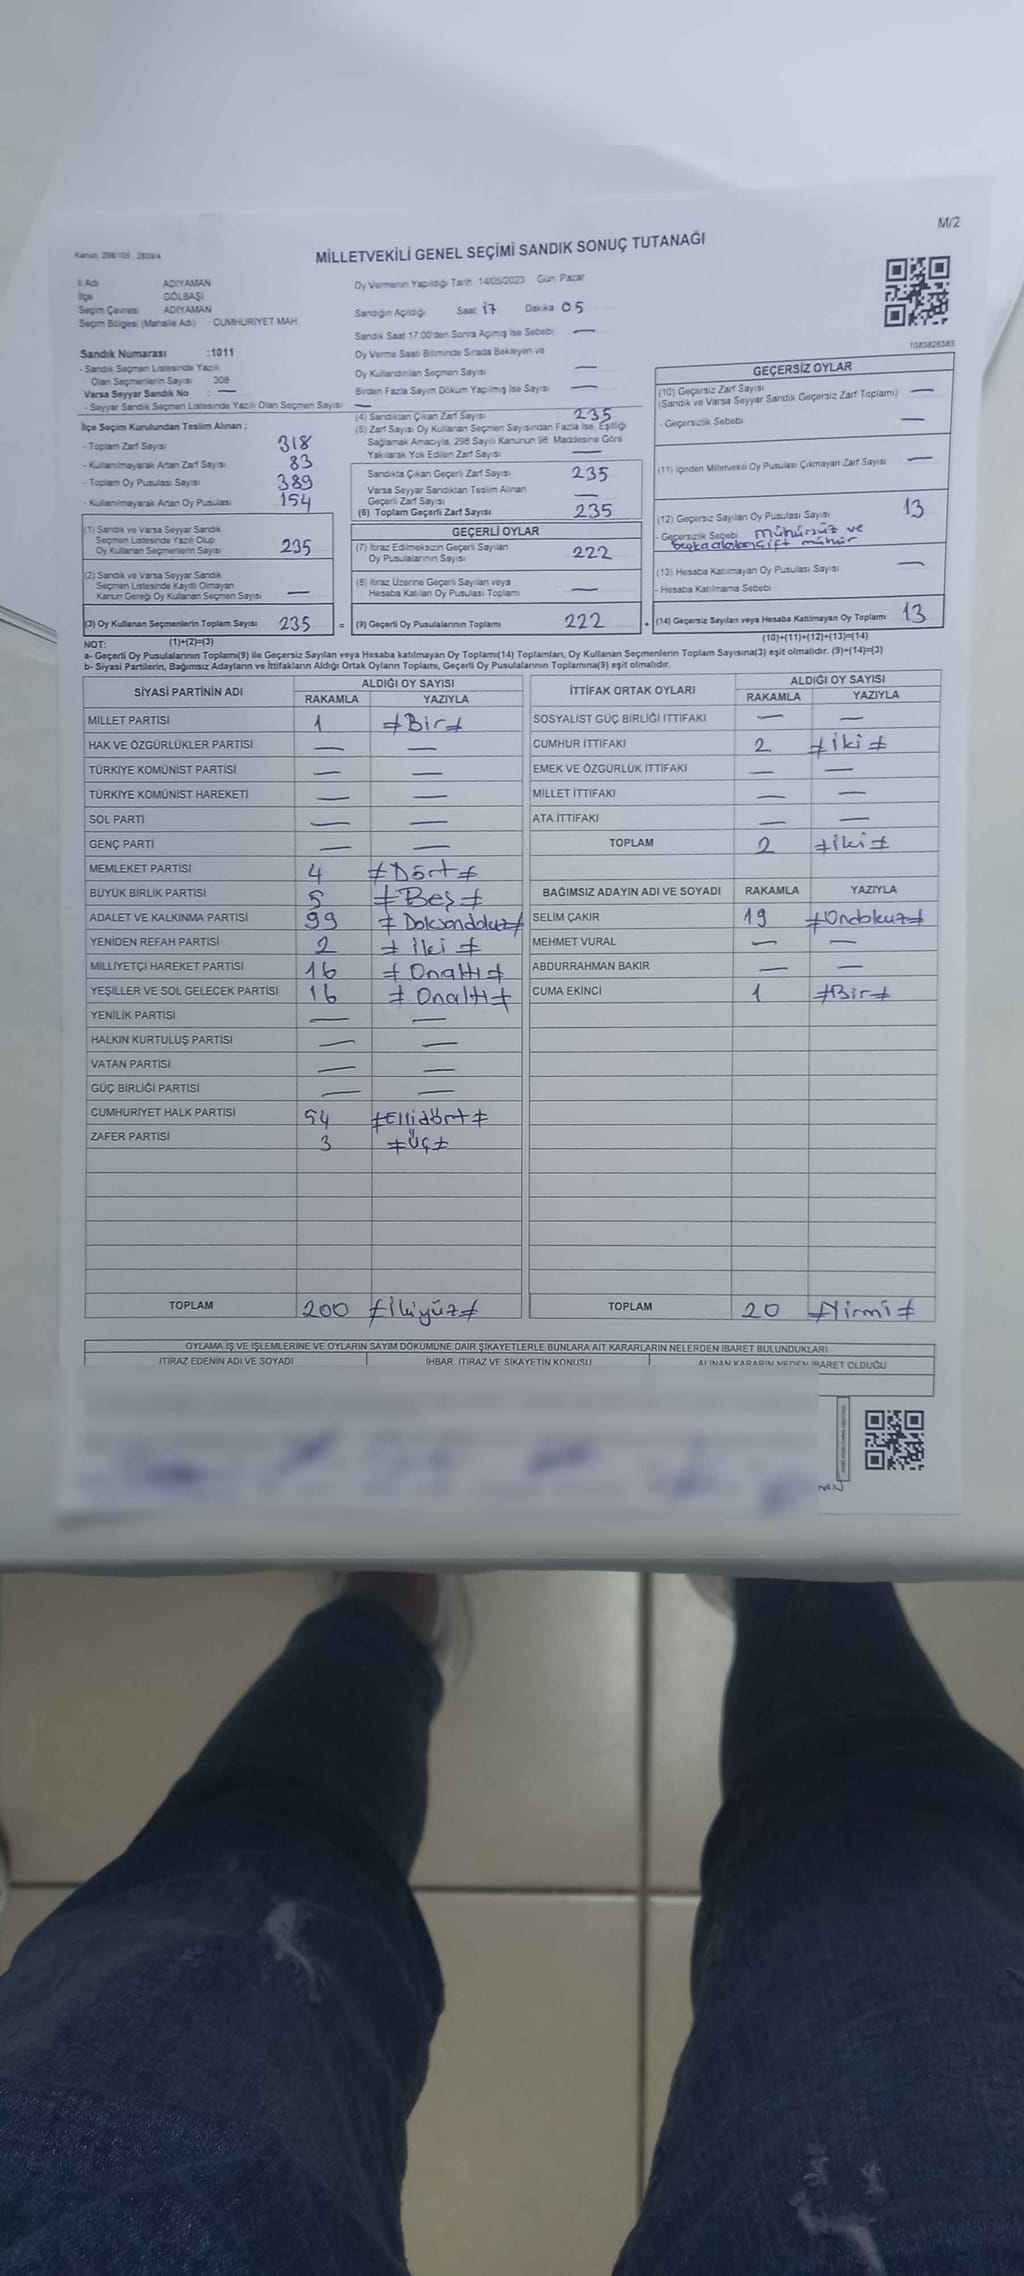 M/2
Kanun: 298/105 2839/4
MİLLETVEKİLİ GENEL SEÇİMİ SANDIK SONUÇ TUTANAĞI
İl Adı ADIYAMAN
İlçe GÖLBAŞI
Seçim Çevresi ADIYAMAN
Seçim Bölgesi (Mahalle Adı) CUMHURİYET MAH.
Sandık Numarası :1011
- Sandık Seçmen Listesinde Yazılı
Olan Seçmenlerin Sayısı 308
Varsa Seyyar Sandık No : —
- Seyyar Sandık Seçmen Listesinde Yazılı Olan Seçmen Sayısı —
İlçe Seçim Kurulundan Teslim Alınan ;
- Toplam Zarf Sayısı 318
- Kullanılmayarak Artan Zarf Sayısı 83
- Toplam Oy Pusulası Sayısı 389
- Kullanılmayarak Artan Oy Pusulası 154
(1) Sandık ve Varsa Seyyar Sandık
Seçmen Listesinde Yazılı Olup
Oy Kullanan Seçmenlerin Sayısı 235
(2) Sandık ve Varsa Seyyar Sandık
Seçmen Listesinde Kayıtlı Olmayan
Kanun Gereği Oy Kullanan Seçmen Sayısı —
(3) Oy Kullanan Seçmenlerin Toplam Sayısı 235 =
(1)+(2)=(3)
Oy Vermenin Yapıldığı Tarih 14/05/2023 Gün: Pazar
Sandığın Açıldığı Saat 17 Dakika 05
Sandık Saat 17.00'den Sonra Açılmış İse Sebebi —
Oy Verme Saati Bitiminde Sırada Bekleyen ve
Oy Kullandırılan Seçmen Sayısı —
Birden Fazla Sayım Döküm Yapılmış İse Sayısı —
(4) Sandıktan Çıkan Zarf Sayısı 235
(5) Zarf Sayısı Oy Kullanan Seçmen Sayısından Fazla İse, Eşitliği
Sağlamak Amacıyla, 298 Sayılı Kanunun 98. Maddesine Göre
Yakılarak Yok Edilen Zarf Sayısı —
Sandıkta Çıkan Geçerli Zarf Sayısı 235
Varsa Seyyar Sandıktan Teslim Alınan
Geçerli Zarf Sayısı —
(6) Toplam Geçerli Zarf Sayısı 235
GEÇERLİ OYLAR
(7) İtiraz Edilmeksizin Geçerli Sayılan
Oy Pusulalarının Sayısı 222
(8) İtiraz Üzerine Geçerli Sayılan veya
Hesaba Katılan Oy Pusulası Toplamı —
(9) Geçerli Oy Pusulalarının Toplamı 222 +
1083826385
GEÇERSİZ OYLAR
(10) Geçersiz Zarf Sayısı
(Sandık ve Varsa Seyyar Sandık Geçersiz Zarf Toplamı) —
- Geçersizlik Sebebi —
(11) İçinden Milletvekili Oy Pusulası Çıkmayan Zarf Sayısı —
(12) Geçersiz Sayılan Oy Pusulası Sayısı 13
- Geçersizlik Sebebi mühürsüz ve
çift mühür
(13) Hesaba Katılmayan Oy Pusulası Sayısı —
- Hesaba Katılmama Sebebi
(14) Geçersiz Sayılan veya Hesaba Katılmayan Oy Toplamı 13
(10)+(11)+(12)+(13)=(14)
NOT:
a- Geçerli Oy Pusulalarının Toplamı(9) ile Geçersiz Sayılan veya Hesaba katılmayan Oy Toplamı(14) Toplamları, Oy Kullanan Seçmenlerin Toplam Sayısına(3) eşit olmalıdır. (9)+(14)=(3)
b- Siyasi Partilerin, Bağımsız Adayların ve İttifakların Aldığı Ortak Oyların Toplamı, Geçerli Oy Pusulalarının Toplamına(9) eşit olmalıdır.
SİYASİ PARTİNİN ADI ALDIĞI OY SAYISI
RAKAMLA YAZIYLA
MİLLET PARTİSİ 1 ≠Bir≠
HAK VE ÖZGÜRLÜKLER PARTİSİ — —
TÜRKİYE KOMÜNİST PARTİSİ — —
TÜRKİYE KOMÜNİST HAREKETİ — —
SOL PARTİ — —
GENÇ PARTİ — —
MEMLEKET PARTİSİ 4 ≠Dört≠
BÜYÜK BİRLİK PARTİSİ 5 ≠Beş≠
ADALET VE KALKINMA PARTİSİ 99 ≠Doksandokuz≠
YENİDEN REFAH PARTİSİ 2 ≠İki≠
MİLLİYETÇİ HAREKET PARTİSİ 16 ≠Onaltı≠
YEŞİLLER VE SOL GELECEK PARTİSİ 16 ≠Onaltı≠
YENİLİK PARTİSİ — —
HALKIN KURTULUŞ PARTİSİ — —
VATAN PARTİSİ — —
GÜÇ BİRLİĞİ PARTİSİ — —
CUMHURİYET HALK PARTİSİ 54 ≠Ellidört≠
ZAFER PARTİSİ 3 ≠Üç≠
TOPLAM 200 ≠İkiyüz≠
İTTİFAK ORTAK OYLARI ALDIĞI OY SAYISI
RAKAMLA YAZIYLA
SOSYALİST GÜÇ BİRLİĞİ İTTİFAKI — —
CUMHUR İTTİFAKI 2 ≠İki≠
EMEK VE ÖZGÜRLÜK İTTİFAKI — —
MİLLET İTTİFAKI — —
ATA İTTİFAKI — —
TOPLAM 2 ≠İki≠
BAĞIMSIZ ADAYIN ADI VE SOYADI RAKAMLA YAZIYLA
SELİM ÇAKIR 19 ≠Ondokuz≠
MEHMET VURAL — —
ABDURRAHMAN BAKIR — —
CUMA EKİNCİ 1 ≠Bir≠
TOPLAM 20 ≠Yirmi≠
OYLAMA İŞ VE İŞLEMLERİNE VE OYLARIN SAYIM DÖKÜMÜNE DAİR ŞİKAYETLERLE BUNLARA AİT KARARLARIN NELERDEN İBARET BULUNDUKLARI
İTİRAZ EDENİN ADI VE SOYADI İHBAR, İTİRAZ VE ŞİKAYETİN KONUSU ALINAN KARARIN NEDEN İBARET OLDUĞU